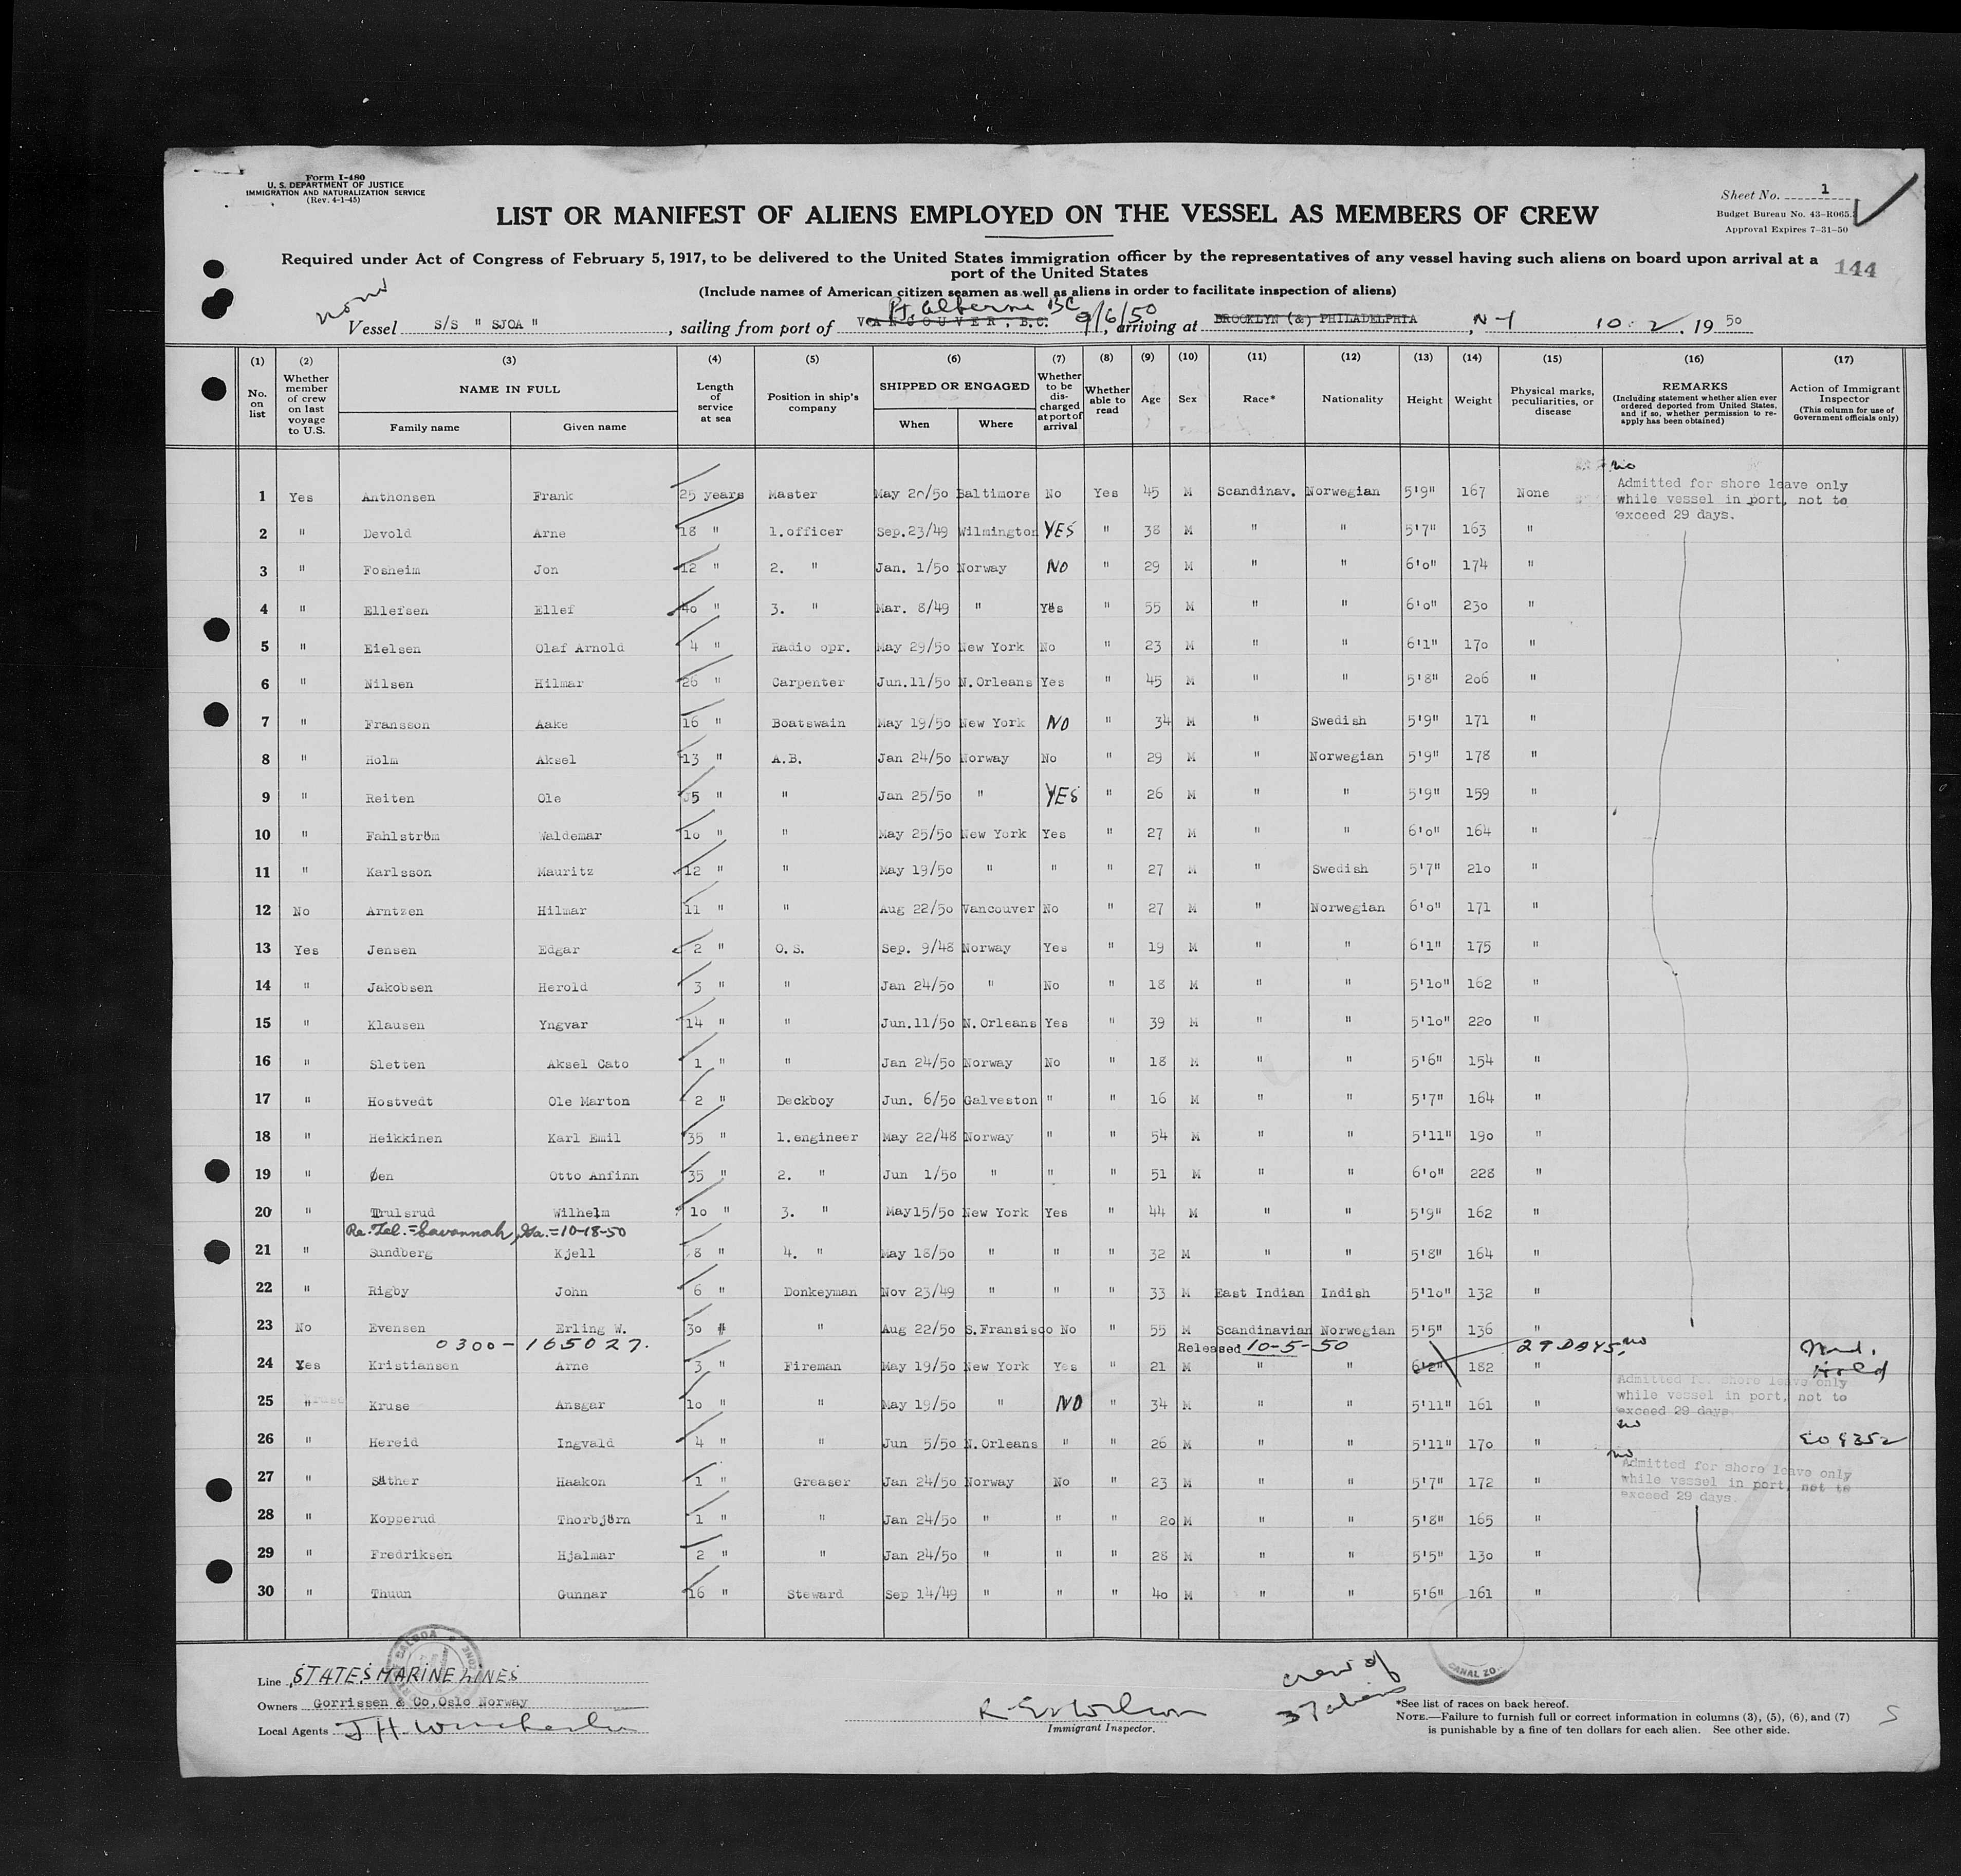 Form I-480
U. S. DEPARTMENT OF JUSTICE
IMMIGRATION AND NATURALIZATION SERVICE
(Rev. 4-1-45)
Sheet No. 1
Budget Bureau No. 43-R065.
Approval Expires 7-31-50
LIST OR MANIFEST OF ALIENS EMPLOYED ON THE VESSEL AS MEMBERS OF CREW
Required under Act of Congress of February 5, 1917, to be delivered to the United States immigration officer by the representatives of any vessel having such aliens on board upon arrival at a
port of the United States
144
(Include names of American citizen seamen as well as aliens in order to facilitate inspection of aliens)
Pt. Alberni BC
Vessel S/S " SJOA " , sailing from port of VANCOUVER, B.C. 9/6/50, arriving at BROOKLYN (&) PHILADELPHIA, N-Y 10-2, 1950
(1) (2) (3) (4) (5) (6) (7) (8) (9) (10) (11) (12) (13) (14) (15) (16) (17)
No. on list
Whether member of crew on last voyage to U.S.
NAME IN FULL
Family name Given name
Length of service at sea
Position in ship's company
SHIPPED OR ENGAGED
When Where
Whether to be discharged at port of arrival
Whether able to read
Age
Sex
Race*
Nationality
Height
Weight
Physical marks, peculiarities, or disease
REMARKS
(Including statement whether alien ever ordered deported from United States, and if so, whether permission to reapply has been obtained)
Action of Immigrant Inspector
(This column for use of Government officials only)
no
1 Yes Anthonsen Frank 25 years Master May 20/50 Baltimore No Yes 45 M Scandinav. Norwegian 5'9" 167 None
Admitted for shore leave only
while vessel in port, not to
exceed 29 days.
2 " Devold Arne 18 " 1.officer Sep.23/49 Wilmington YES " 38 M " " 5'7" 163 "
3 " Fosheim Jon 12 " 2. " Jan. 1/50 Norway NO " 29 M " " 6'0" 174 "
4 " Ellefsen Ellef 40 " 3. " Mar. 8/49 " Yes " 55 M " " 6'0" 230 "
5 " Eielsen Olaf Arnold 4 " Radio opr. May 29/50 New York No " 23 M " " 6'1" 170 "
6 " Nilsen Hilmar 26 " Carpenter Jun.11/50 N.Orleans Yes " 45 M " " 5'8" 206 "
7 " Fransson Aake 16 " Boatswain May 19/50 New York NO " 34 M " Swedish 5'9" 171 "
8 " Holm Aksel 13 " A.B. Jan 24/50 Norway No " 29 M " Norwegian 5'9" 178 "
9 " Reiten Ole 5 " " Jan 25/50 " YES " 26 M " " 5'9" 159 "
10 " Fahlström Waldemar 10 " " May 25/50 New York Yes " 27 M " " 6'0" 164 "
11 " Karlsson Mauritz 12 " " May 19/50 " " " 27 M " Swedish 5'7" 210 "
12 No Arntzen Hilmar 11 " " Aug 22/50 Vancouver No " 27 M " Norwegian 6'0" 171 "
13 Yes Jensen Edgar 2 " O.S. Sep. 9/48 Norway Yes " 19 M " " 6'1" 175 "
14 " Jakobsen Herold 3 " " Jan 24/50 " No " 18 M " " 5'10" 162 "
15 " Klausen Yngvar 14 " " Jun.11/50 N.Orleans Yes " 39 M " " 5'10" 220 "
16 " Sletten Aksel Cato 1 " " Jan 24/50 Norway No " 18 M " " 5'6" 154 "
17 " Hostvedt Ole Marton 2 " Deckboy Jun. 6/50 Galveston " " 16 M " " 5'7" 164 "
18 " Heikkinen Karl Emil 35 " 1.engineer May 22/48 Norway " " 54 M " " 5'11" 190 "
19 " Øen Otto Anfinn 35 " 2. " Jun 1/50 " " " 51 M " " 6'0" 228 "
20 " Trulsrud Wilhelm 10 " 3. " May15/50 New York Yes " 44 M " " 5'9" 162 "
Re. Tel. = Savannah, Ga. = 10-18-50
21 " Sundberg Kjell 8 " 4. " May 18/50 " " " 32 M " " 5'8" 164 "
22 " Rigby John 6 " Donkeyman Nov 23/49 " " " 33 M East Indian Indish 5'10" 132 "
23 No Evensen Erling W. 30 " " Aug 22/50 S.Fransisco No " 55 M Scandinavian Norwegian 5'5" 136 "
0300-165027. Released 10-5-50 29 DAYS. no
24 Yes Kristiansen Arne 3 " Fireman May 19/50 New York Yes " 21 M " " 6'2" 182 " Hold
Admitted for shore leave only
while vessel in port, not to
exceed 29 days.
25 " Kruse Ansgar 10 " " May 19/50 " NO " 34 M " " 5'11" 161 "
no
26 " Hereid Ingvald 4 " " Jun 5/50 N.Orleans " " 26 M " " 5'11" 170 " EO 9352
no
Admitted for shore leave only
while vessel in port, not to
exceed 29 days.
27 " Säther Haakon 1 " Greaser Jan 24/50 Norway No " 23 M " " 5'7" 172 "
28 " Kopperud Thorbjörn 1 " " Jan 24/50 " " " 20 M " " 5'8" 165 "
29 " Fredriksen Hjalmar 2 " " Jan 24/50 " " " 28 M " " 5'5" 130 "
30 " Thuun Gunnar 16 " Steward Sep 14/49 " " " 40 M " " 5'6" 161 "
BALBOA
CANAL ZO
Line STATES MARINE LINES
Owners Gorrissen & Co, Oslo Norway
Local Agents J H Winchester
Immigrant Inspector.
crew of
37 aliens
*See list of races on back hereof.
NOTE.—Failure to furnish full or correct information in columns (3), (5), (6), and (7)
is punishable by a fine of ten dollars for each alien. See other side.